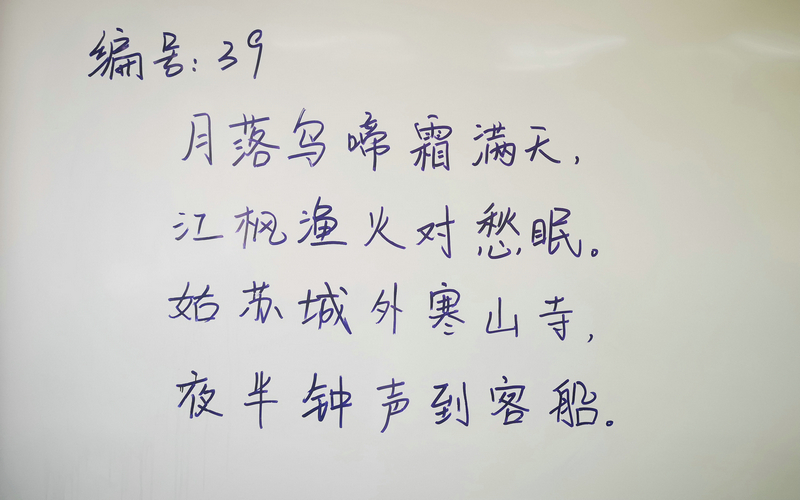 编号:39
月落乌啼霜满天,
江枫渔火对愁眠。
姑苏城外寒山寺,
夜半钟声到客船。